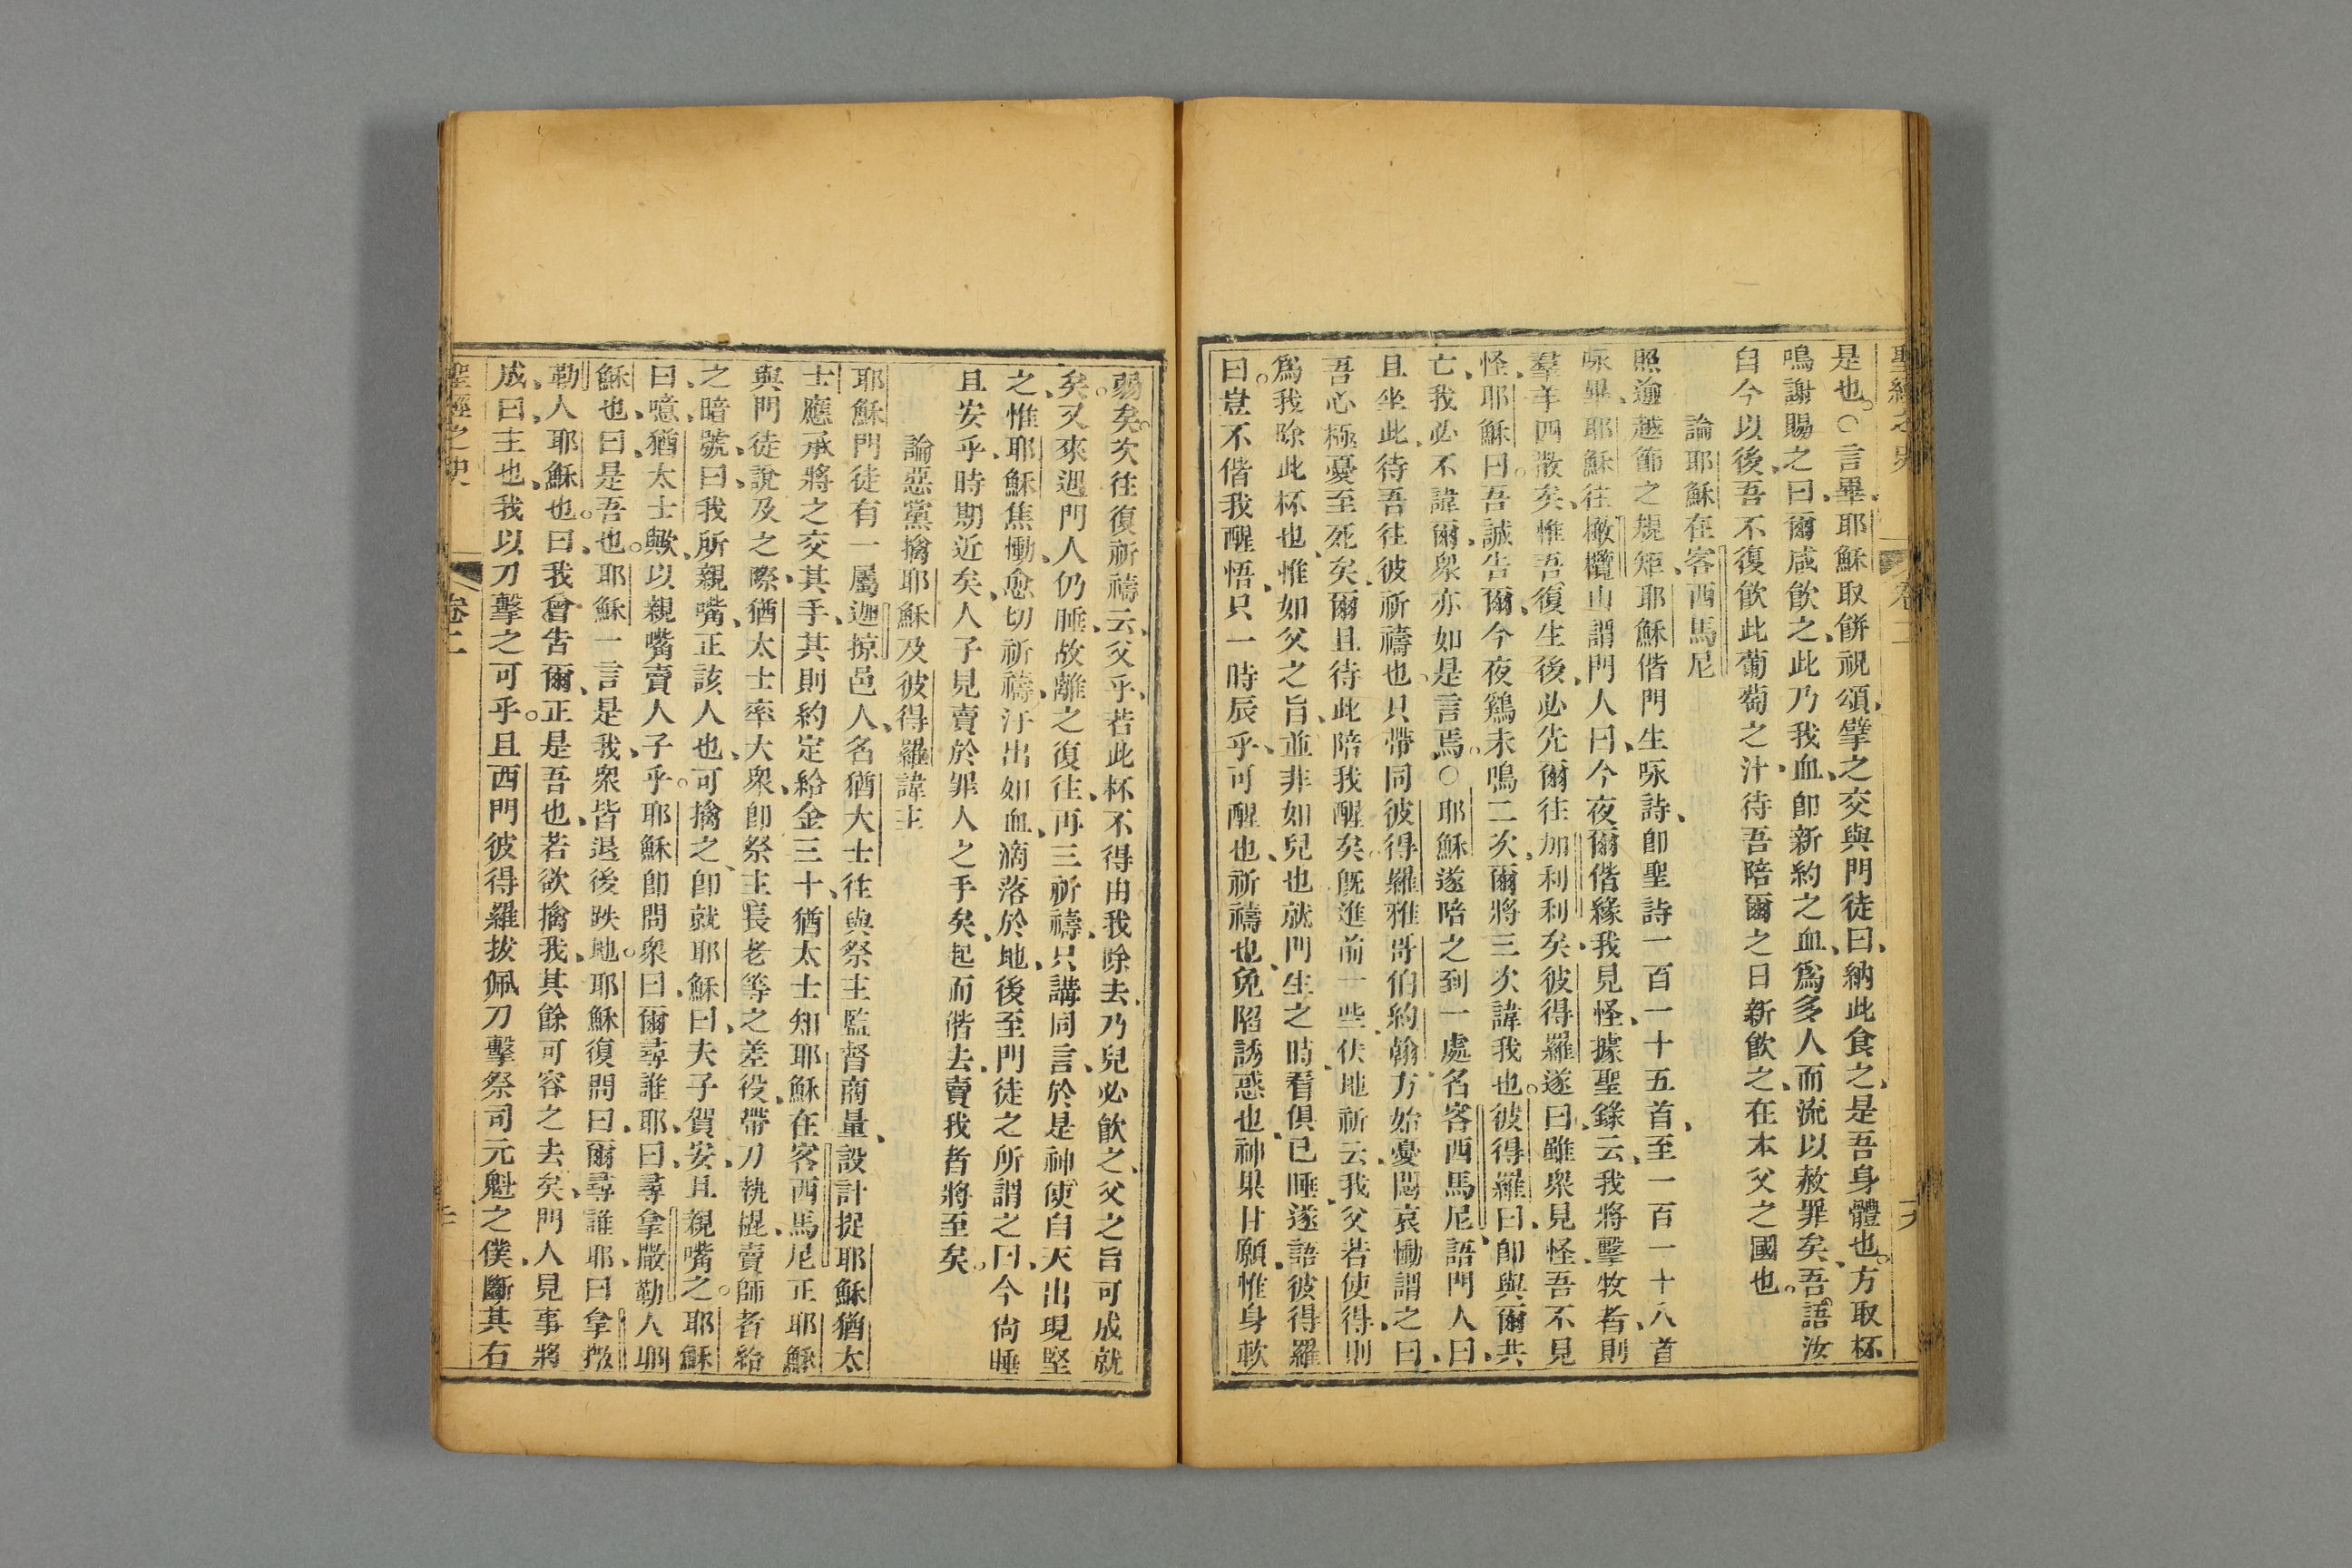 聖經之史 卷二
是也。○言畢、耶穌取餅祝頌、擘之交與門徒曰、納此食之、是吾身體也。方取杯
鳴謝賜之曰、爾咸飲之、此乃我血、即新約之血、為多人而流以赦罪矣、吾語汝
自今以後、吾不復飲此葡萄之汁、待吾陪爾之日新飲之、在本父之國也。
論耶穌在客西馬尼
照逾越節之規矩、耶穌偕門生咏詩、即聖詩一百一十五首、至一百一十八首
咏畢、耶穌往橄欖山謂門人曰、今夜爾偕緣我見怪、據聖錄云、我將擊牧者、則
羣羊四散矣、惟吾復生後、必先爾往加利利矣、彼得羅遂曰、雖衆見怪、吾不見
怪、耶穌曰。吾誠告爾、今夜鷄未鳴二次、爾將三次諱我也。彼得羅曰、即與爾共
亡、我必不諱爾、衆亦如是言焉。○耶穌遂陪之到一處名客西馬尼、語門人曰、
且坐此、待吾往彼祈禱也。只帶同彼得羅雅哥伯約翰、方始憂悶哀慟謂之曰、
吾心極憂至死矣、爾且待此陪我醒矣。旣進前一些、伏地祈云、我父若使得、則
為我除此杯也、惟如父之旨、並非如兒也就門生之時、看俱已睡、遂語彼得羅
曰。豈不偕我醒悟、只一時辰乎、可醒也、祈禱也、免陷誘惑也、神果甘願、惟身軟
弱矣。次往復祈禱云、父乎、若此杯不得由我除去、乃兒必飲之、父之旨可成就
矣。又來週門人仍睡、故離之復往、再三祈禱、只講同言、於是神使自天出現堅
之、惟耶穌焦慟、愈切祈禱、汗出如血、滴落於地、後至門徒之所謂之曰、今尚睡
且安乎、時期近矣、人子見賣於罪人之手矣、起而偕去、賣我者將至矣。
論惡黨擒耶穌及彼得羅諱主
耶穌門徒有一屬迦掠邑人、名猶大士往與祭主監督商量、設計捉耶穌猶太
士應承將之交其手、其則約定給金三十、猶太士知耶穌在客西馬尼正耶穌
與門徒說及之際、猶太士率大衆、即祭主長老等之差役、帶刀執棍、賣師者給
之暗號曰、我所親嘴、正該人也、可擒之、即就耶穌曰、夫子賀安、且親嘴之。耶穌
曰、噫、猶太士歟、以親嘴賣人子乎。耶穌即問衆曰、爾尋誰耶、曰、尋拿撒勒人耶
穌也、曰、是吾也。耶穌一言是我、衆皆退後跌地。耶穌復問曰、爾尋誰耶、曰拿撒
勒人耶穌也。曰、我曾告爾、正是吾也、若欲擒我、其餘可容之去矣、門人見事將
成、曰、主也、我以刀擊之可乎。且西門彼得羅拔佩刀擊祭司元魁之僕、斷其右
聖經之史 卷二